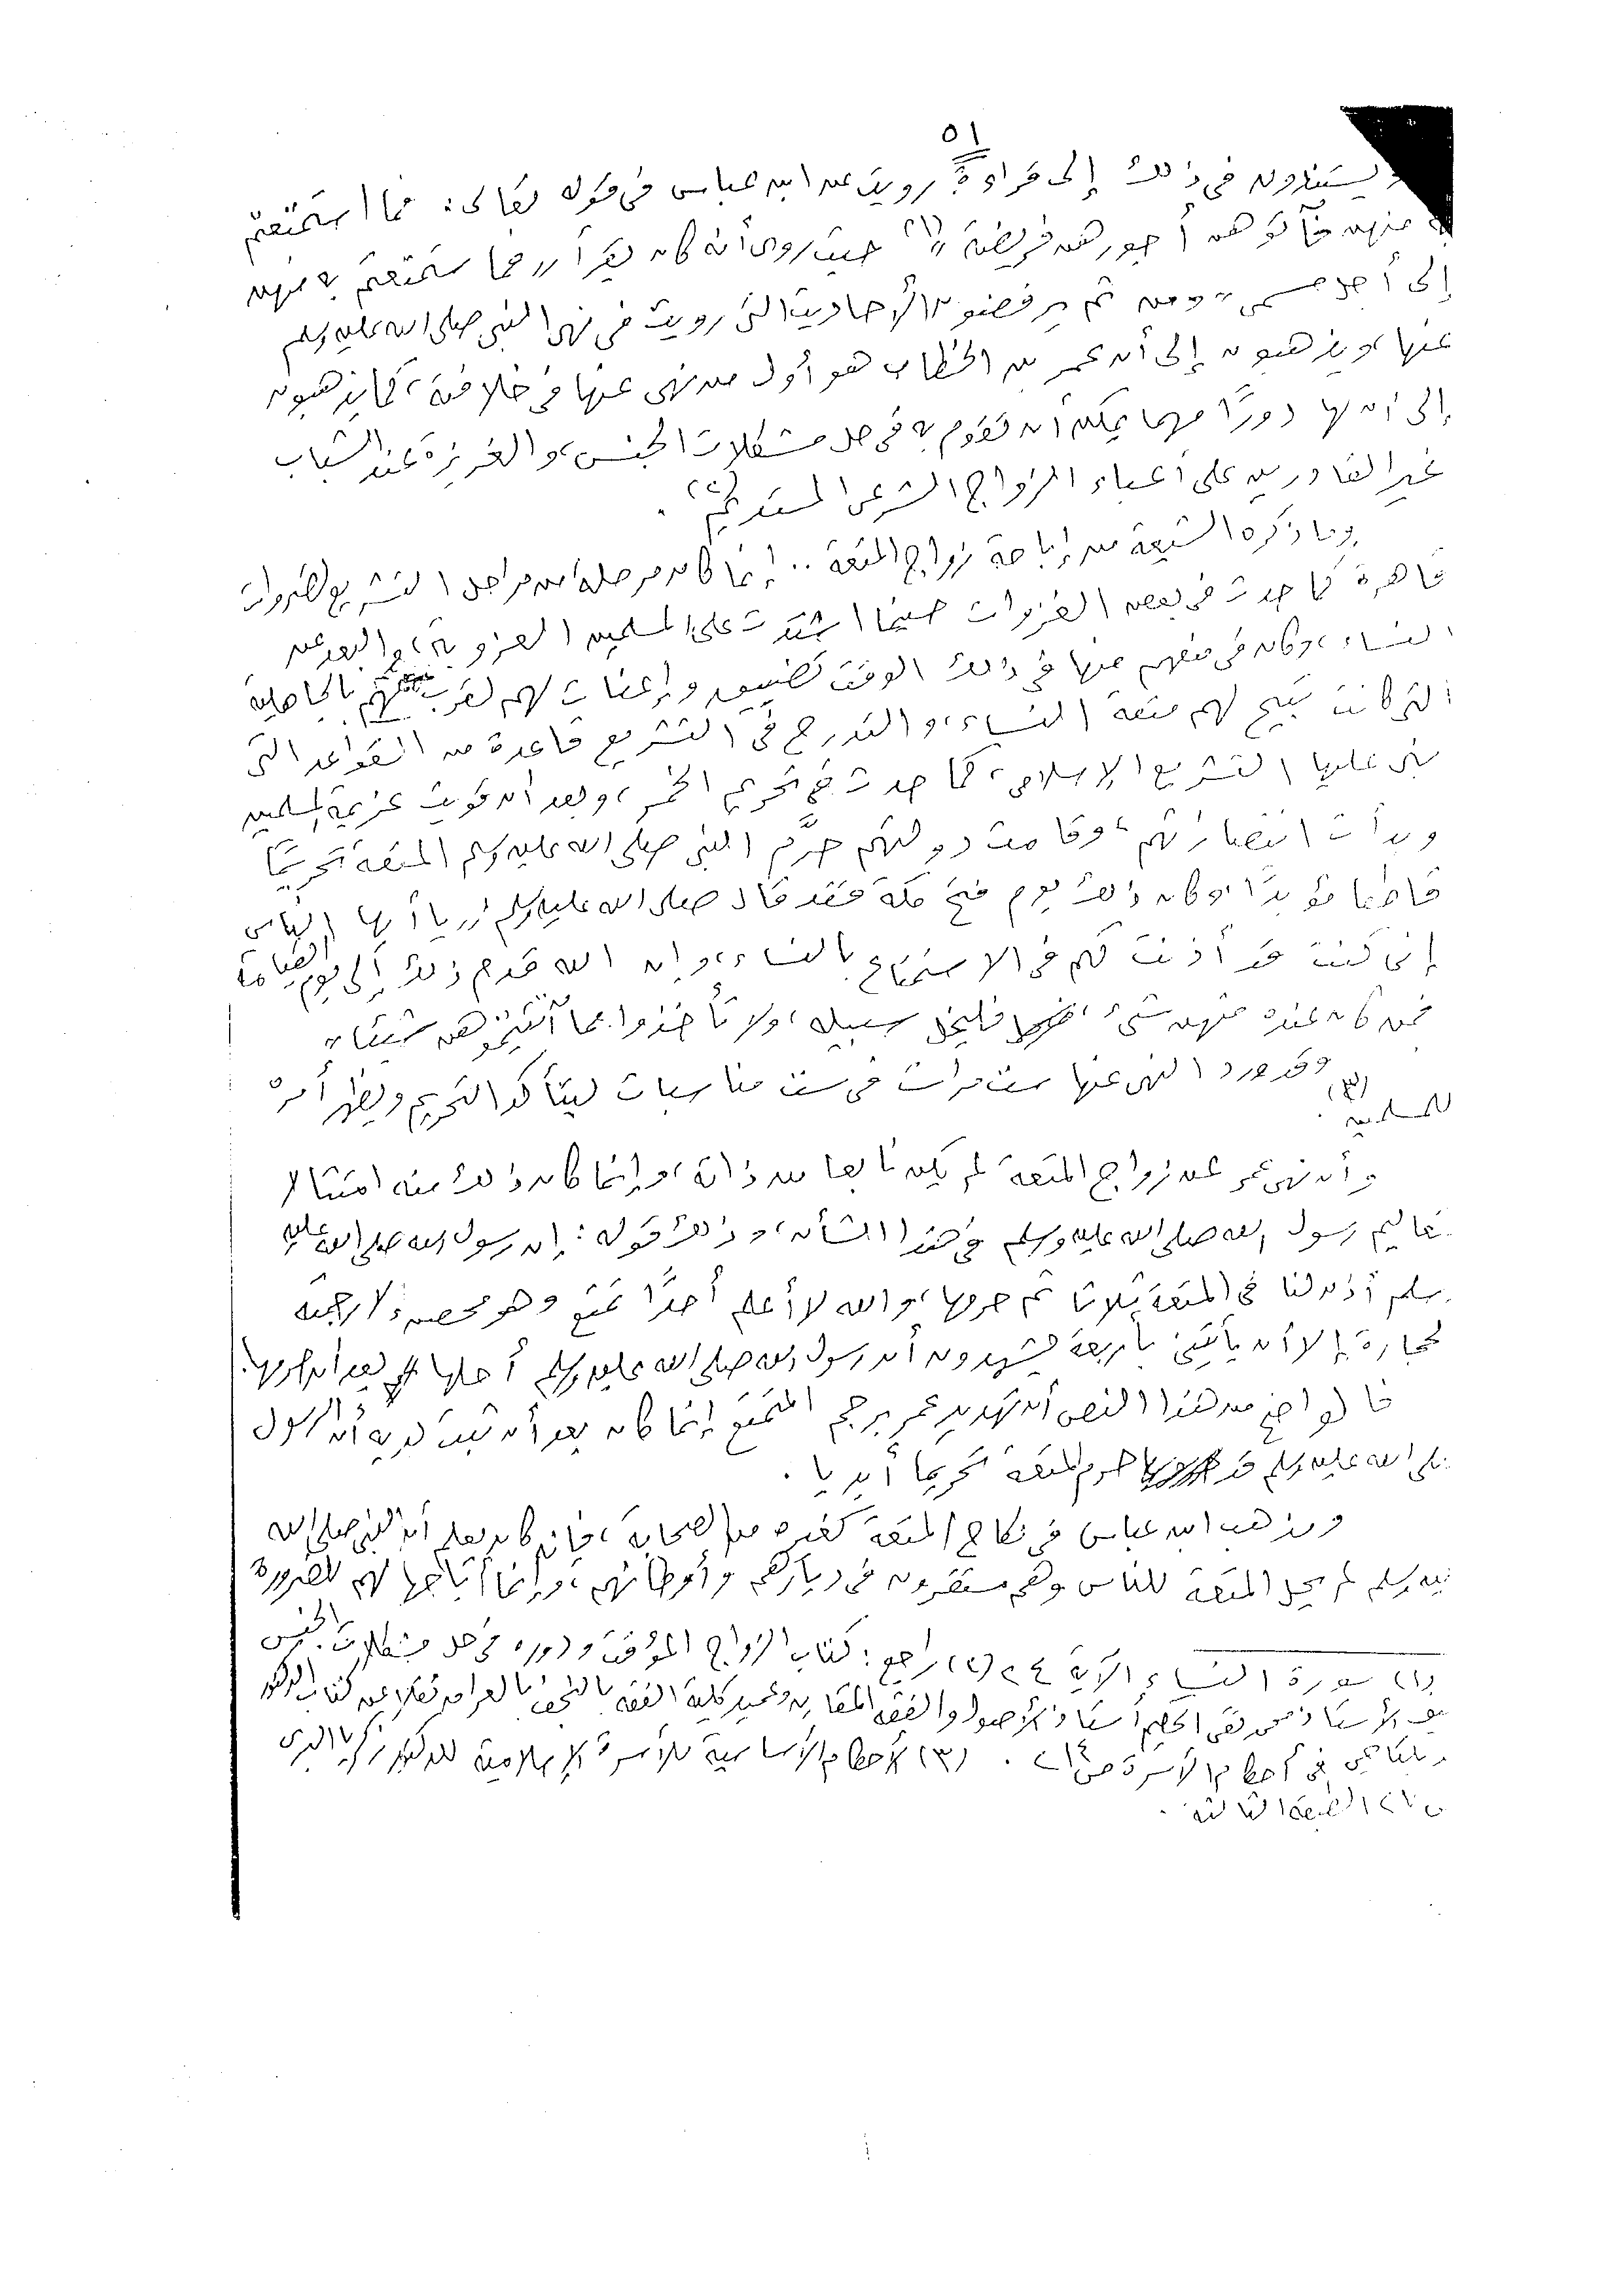 ٥١
يستندون في ذلك إلى قراءة رويت عن ابن عباس في قوله تعالى: فما استمتعتم
به منهن فآتوهن أجورهن فريضة" (١) حيث روى أنه كان يقرأ "فما استمتعتم به منهن
إلى أجل مسمى" ومن ثم يرفضون الأحاديث التى رويت فى نهى النبى صلى الله عليه وسلم
عنها، ويذهبون إلى أن عمر بن الخطاب هو أول من نهى عنها فى خلافته، كما يذهبون
إلى أن لها دورًا مهما يمكن أن تقوم به فى حل مشكلات الجنس، والغريزة عند الشباب
غير القادرين على أعباء الزواج الشرعى المستديم (٢).
وما ذكره الشيعة من إباحة زواج المتعة .. إنما كان مرحلة من مراحل التشريع لضرورات
قاهرة كما حدث فى بعض الغزوات حينما اشتدت على المسلمين العزوبة، والبعد عن
النساء، وكان فى منعهم عنها فى ذلك الوقت تضييق وإعنات لهم لقرب عهدهم بالجاهلية
التى كانت تبيح لهم متعة النساء، والتدرج فى التشريع قاعدة من القواعد التى
بنى عليها التشريع الإسلامى، كما حدث فى تحريم الخمر، وبعد أن قويت عزيمة المسلمين
وبدأت انتصاراتهم، وقامت دولتهم حرَّم النبى صلى الله عليه وسلم المتعة تحريمًا
قاطعا مؤبدًا، وكان ذلك يوم فتح مكة فقد قال صلى الله عليه وسلم "يا أيها الناس
إنى كنت قد أذنت لكم فى الاستمتاع بالنساء، وإن الله قدم ذلك إلى يوم القيامة
فمن كان عنده منهن شئ، فليخل سبيله، ولا تأخذوا مما آتيتموهن شيئا"
وقد ورد النهى عنها ست مرات فى ست مناسبات ليتأكد التحريم ويظهر أمره
للمسلمين (٣).
وأن نهى عمر عن زواج المتعة لم يكن نابعا من ذاته، وإنما كان ذلك منه امتثالا
تعاليم رسول الله صلى الله عليه وسلم فى هذا الشأن، وذلك قوله: إن رسول الله صلى الله عليه
وسلم أذن لنا فى المتعة ثلاثا ثم حرمها، والله لا أعلم أحدًا تمتع وهو محصن إلا رجمته
بحجارة إلا أن يأتينى بأربعة يشهدون أن رسول الله صلى الله عليه وسلم أحلها بعد أن حرمها.
فالواضح من هذا النص أن تهديد عمر برجم المتمتع إنما كان بعد أن ثبت لديه أن الرسول
صلى الله عليه وسلم قد حرم المتعة تحريما أبديا.
ومذهب ابن عباس فى نكاح المتعة كغيره من الصحابة، فإن كان يعلم أن النبى صلى الله
عليه وسلم لم يحل المتعة للناس وهم مستقرون فى ديارهم وأوطانهم، وإنما أباحها لهم للضرورة
(١) سورة النساء الآية ٢٤ (٢) راجع: كتاب الزواج المؤقت ودوره فى حل مشكلات الجنس
الأستاذ محمد تقى الحكيم أستاذ الأصول والفقه المقارن وعميد كلية الفقه بالنجف بالعراق نقلا عن كتاب الدكتور
بلتاجى فى أحكام الأسرة ص . (٣) الأحكام الأساسية للأسرة الإسلامية للدكتور زكريا البرى
الطبعة الثالثة.